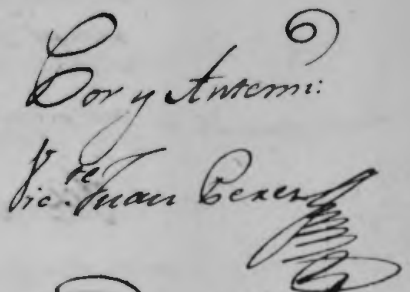 Por y Antemi:
Vic.te Juan Perez